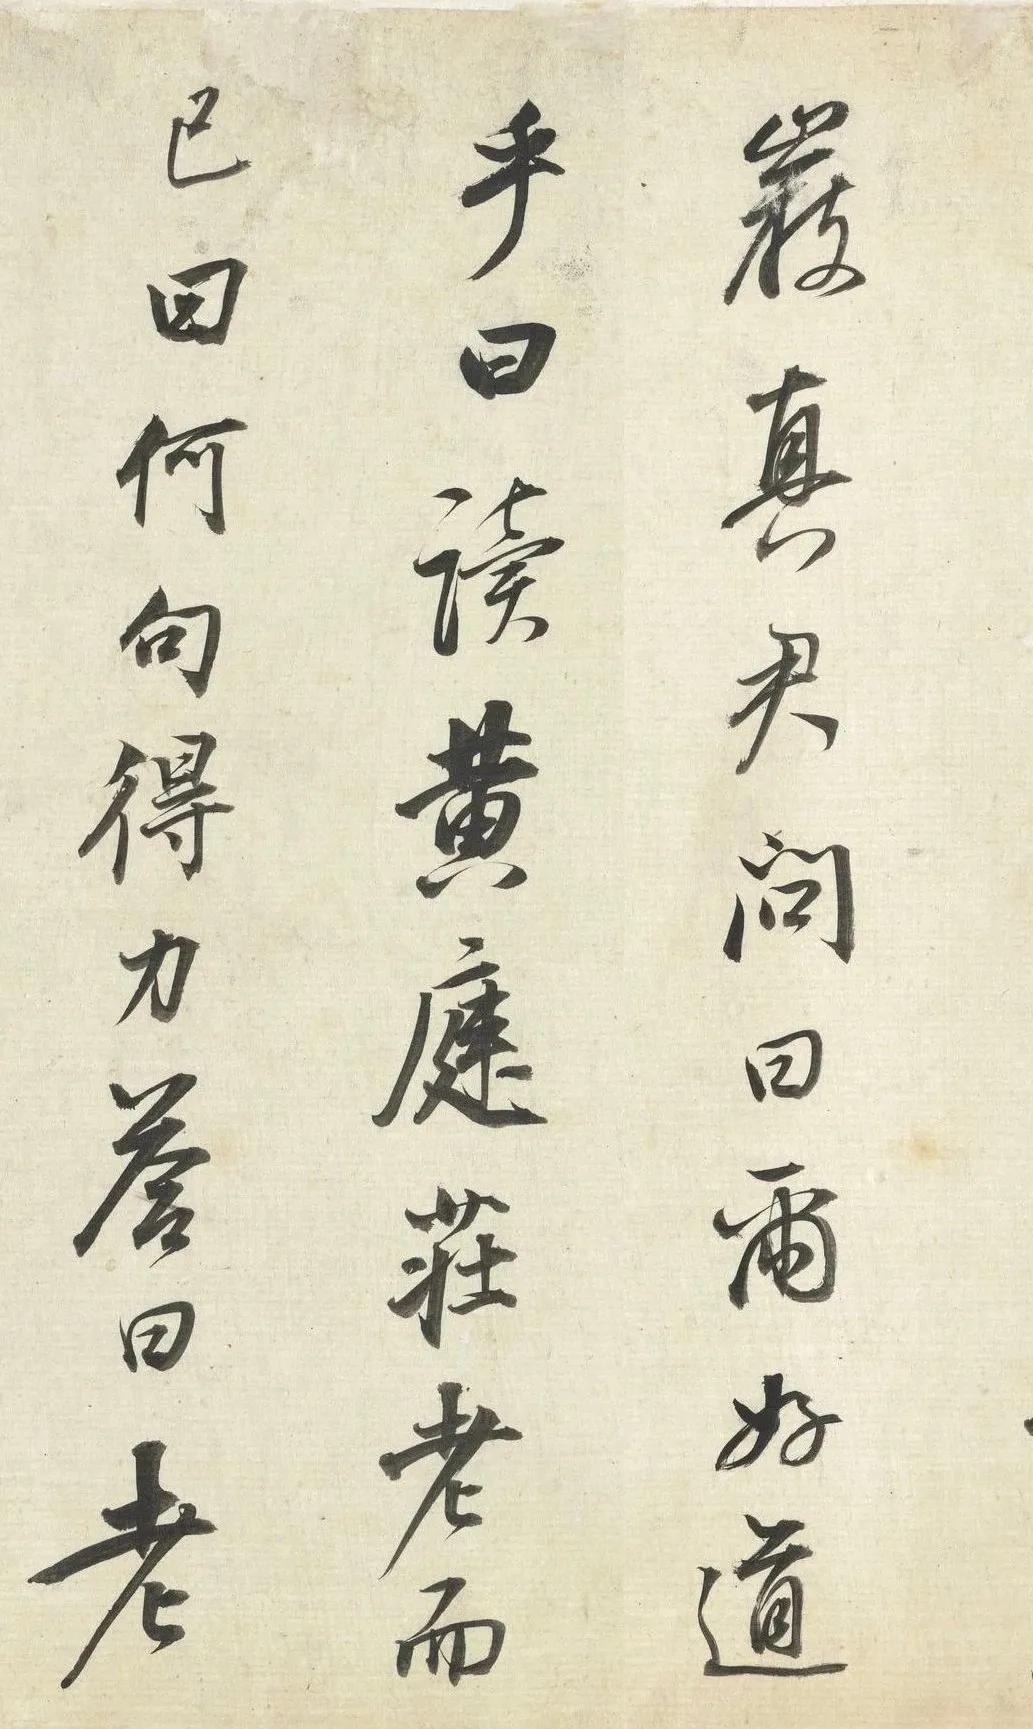 嚴真君問曰爾好道
乎曰讀黃庭莊老而
已曰何句得力答曰老